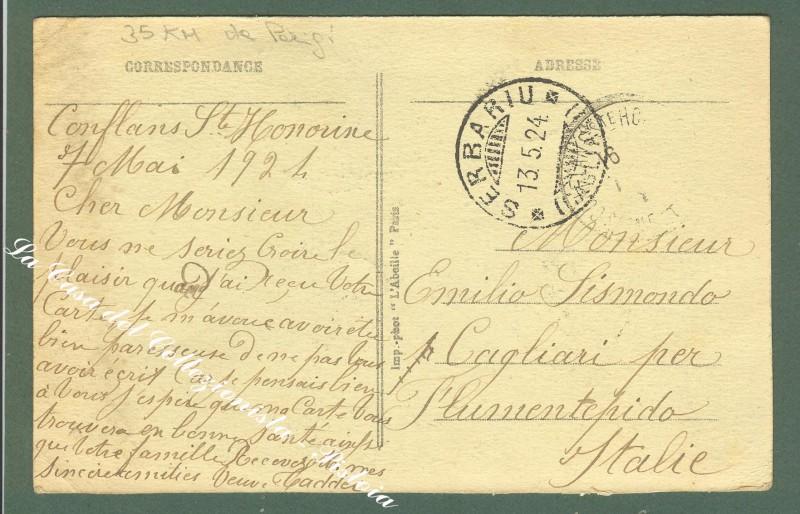 35 KM de Parigi
CORRESPONDANCE
Conflans St. Honorine
7 Mai 1924
Cher Monsieur
Vous ne seriez Croire le
plaisir quand J'ai Reçu Votre
Carte, Je m'avoue avoir été
bien paresseuse de ne pas Vous
avoir ecrit Car Je pensais bien
à Vous J'espère que ma Carte Vous
trouvera en bonne Santé ainsi
que Votre famille Recevez mes
Sincère amitiés Veuve Taddei
ADRESSE
SERBARIU
13.5.24
(CAGLIARI)
Monsieur
Emilio Sismondo
Cagliari per
Flumentepido
Italie
Imp.-phot "L'Abeille" Paris
La Casa del Collezionista